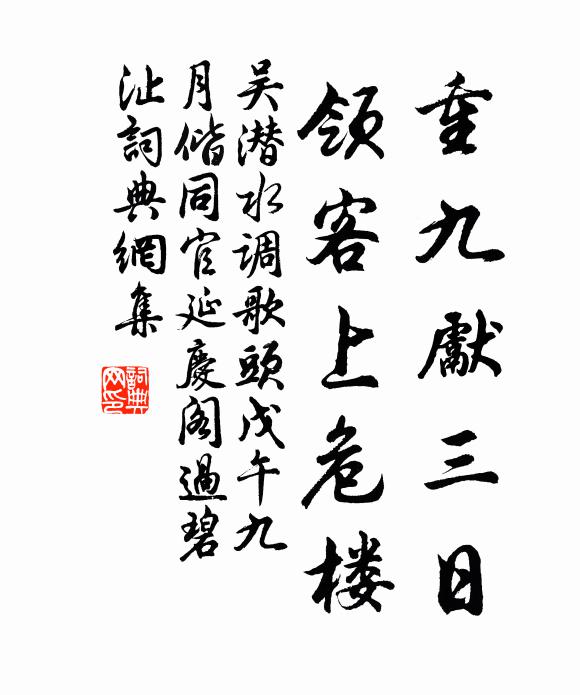 重九獻三日
領客上危楼
吴潜水调歌頭戊午九
月偕同官延慶阁過碧
沚詞典網集
詞典
网印